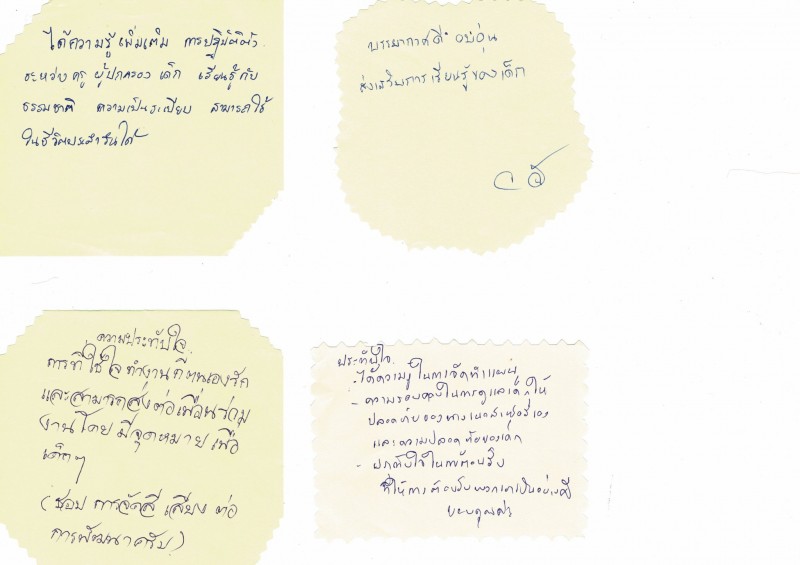 ได้ความรู้เพิ่มเติม การปฏิบัติตัว
ระหว่าง ครู ผู้ปกครอง เด็ก เรียนรู้กับ
ธรรมชาติ ความเป็นระเบียบ สามารถใช้
ในชีวิตประจำวันได้
บรรยากาศดี อบอุ่น
ส่งเสริมการเรียนรู้ของเด็ก
ความประทับใจ
การที่ใช้ใจทำงานที่ตนเองรัก
และสามารถส่งต่อเพื่อนร่วม
งานโดยมีจุดหมายเพื่อ
เด็กๆ
(ชอบ การจัดสี เสียง ต่อ
การพัฒนาครับ)
ประทับใจ
- ได้ความรู้ในการจัดทำแผน
- ความรอบคอบในการดูแลเด็กให้
ปลอดภัย
และความปลอดภัยของเด็ก
- ประทับใจในการต้อนรับ
ที่ให้การต้อนรับพวกเราเป็นอย่างดี
ขอบคุณค่ะ